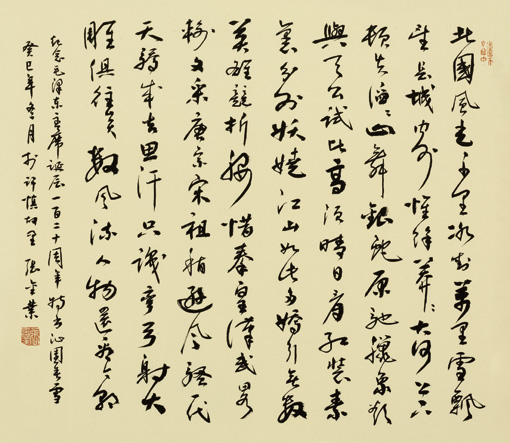 北國風光千里冰封萬里雪飄
望長城內外惟餘莽々大河上下
頓失滔々山舞銀蛇原馳蠟象欲
與天公試比高須晴日看紅裝素
裹分外妖嬈江山如此多嬌引無數
英雄競折腰惜秦皇漢武略
輸文采唐宗宋祖稍遜風騷一代
天驕成吉思汗只識彎弓射大
雕俱往矣數風流人物還看今朝
紀念毛澤東主席誕辰一百二十周年特書沁園春雪
癸巳年冬月於許慎故里 張金業